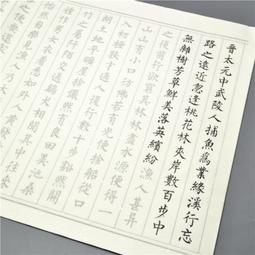 晉太元中武陵人捕魚為業緣溪行忘
路之遠近忽逢桃花林夾岸數百步中
無雜樹芳草鮮美落英繽紛漁人甚異
之復前行欲窮其林林盡水源便得一
山山有小口仿佛若有光便捨船從口
入初極狹纔通人復行數十步豁然開
朗土地平曠屋舍儼然有良田美池桑
竹之屬阡陌交通雞犬相聞其中往來
種作男女衣著悉如外人黃髮